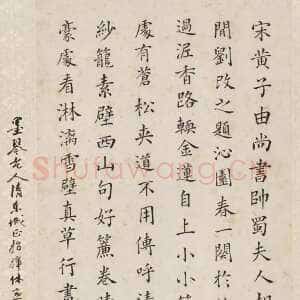 宋黃子由尚書帥蜀夫人胡
閒劉改之題沁園春一闋於
過泥香路轉金蓮自上小小
處有蒼松夾道不用傳呼清
紗籠素壁西山句好簾卷晴
豪處看淋漓雪壁真草行書
墨琴
Shufawang.cn